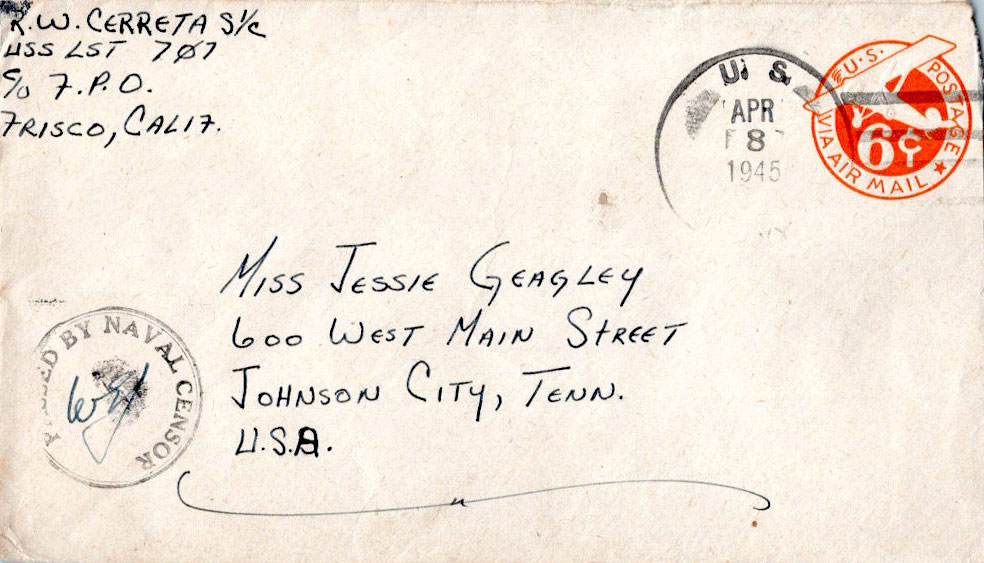 R.W. CERRETA S1/c
USS LST 707
c/o F.P.O.
FRISCO, CALIF.
U.S.
APR
8
1945
U.S. POSTAGE
6¢
VIA AIR MAIL
MISS JESSIE GEAGLEY
600 WEST MAIN STREET
JOHNSON CITY, TENN.
U.S.A.
PASSED BY NAVAL CENSOR